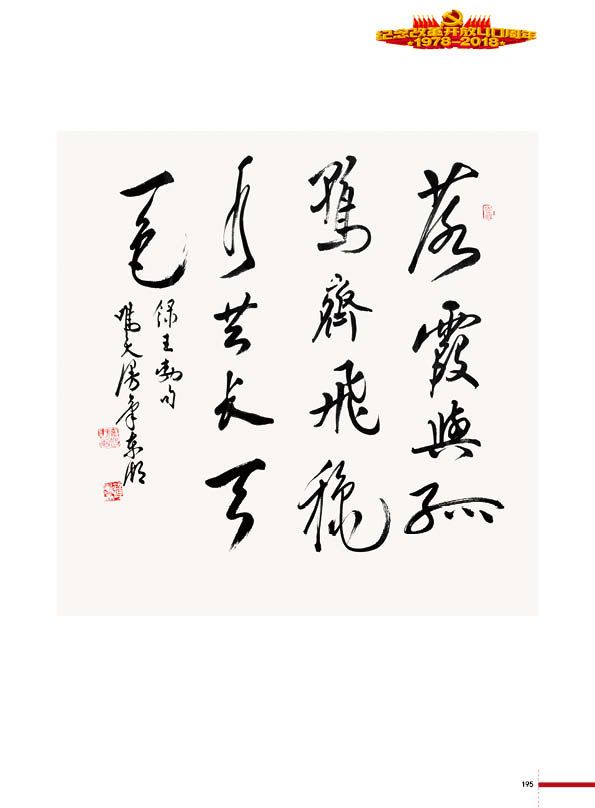 纪念改革开放40周年
1978-2018
落霞與孤
鶩齊飛秋
水共長天
一色
録王勃句
195